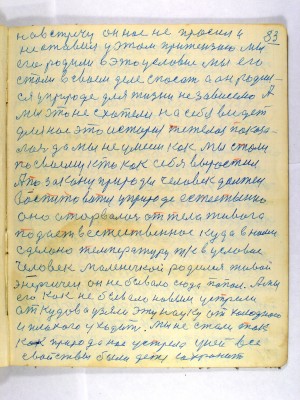 на встречу он нас не просил и 83
не ставил у этом притензию мы
его родили в это условие мы его
стали в своем деле спасат а он родил-
ся у природе для жизни независемо А
мы это не схотели на себя видет
для нас это история тежелая показа-
лася да мы не умеем как мы стали
по своему кто как себя вырастил
А по закону природы человек должен
Расти то вот у природе естественно
оно оторвалося от тела живога
подает в естественное куда в нами
сделано температуру т/к в условае
человек маленкой родился живой
энергичен он не бывало сюда попал. А мы
его как не бывало новым устрели
откудова взяли эту науку от холодного
и плохого уходит. Мы не стали так
как природа нас устрела у ней все
свойствы были дето сохранит